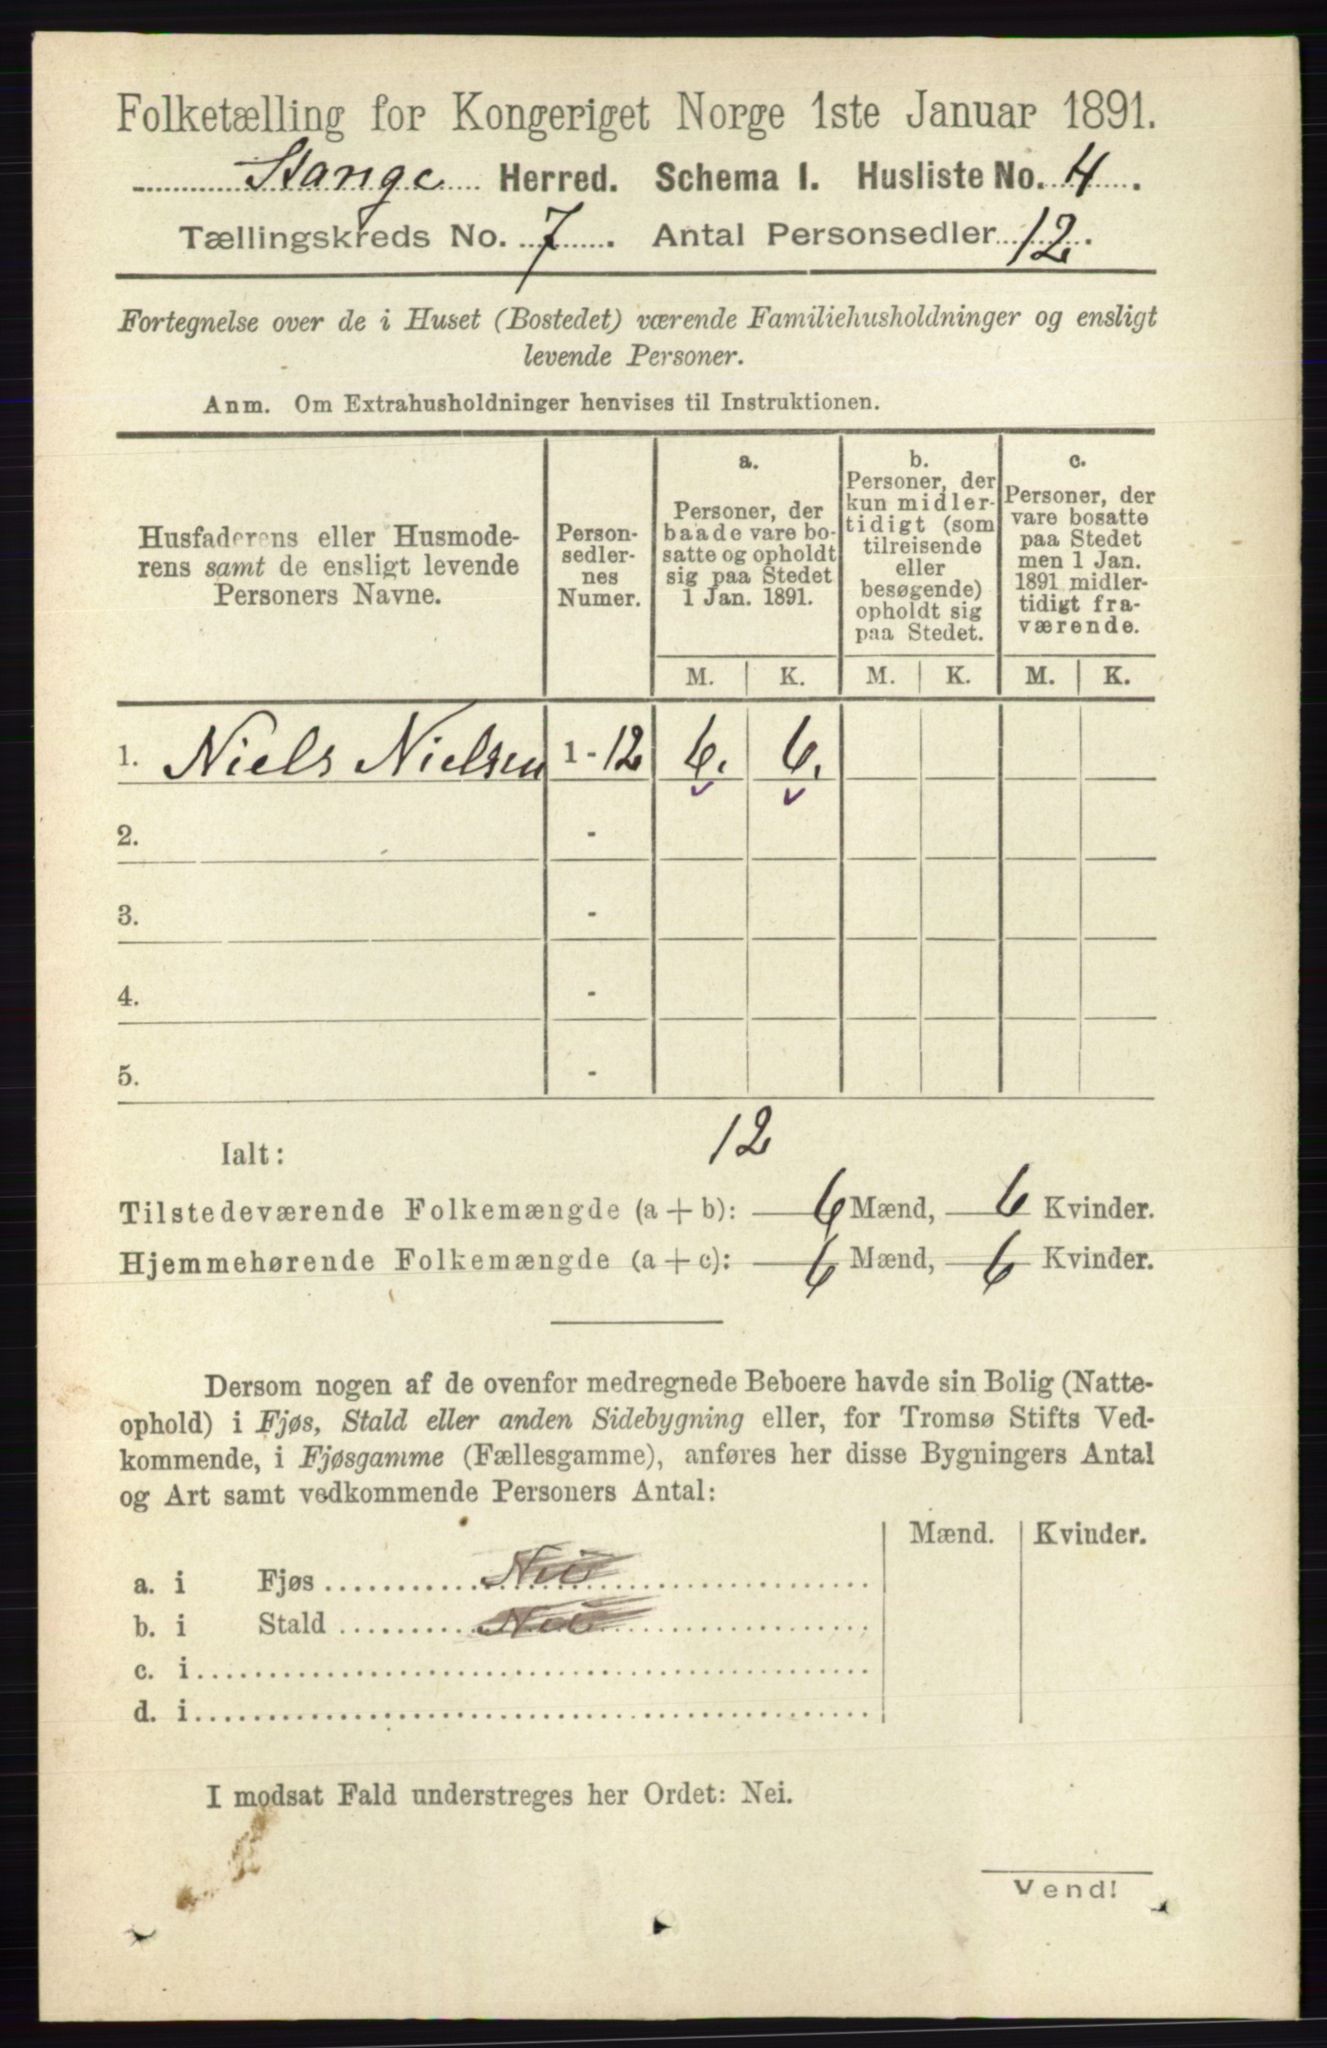 Folketælling for Kongeriget Norge 1ste Januar 1891.
Stange Herred. Schema I. Husliste No. 4.
Tællingskreds No. 7. Antal Personsedler 12.
Fortegnelse over de i Huset (Bostedet) værende Familiehusholdninger og ensligt
levende Personer.
Anm. Om Extrahusholdninger henvises til Instruktionen.
Husfaderens eller Husmode-
rens samt de ensligt levende
Personers Navne.
Person-
sedler-
nes
Numer.
a.
Personer, der
baade vare bo-
satte og opholdt
sig paa Stedet
1 Jan. 1891.
b.
Personer, der
kun midler-
tidigt (som
tilreisende
eller
besøgende)
opholdt sig
paa Stedet.
c.
Personer, der
vare bosatte
paa Stedet
men 1 Jan.
1891 midler-
tidigt fra-
værende.
M. K. M. K. M. K.
1. Niels Nielsen 1 - 12 6. 6.
2. -
3. -
4. -
5. -
12
Ialt:
Tilstedeværende Folkemængde (a + b): 6 Mænd, 6 Kvinder.
Hjemmehørende Folkemængde (a + c): 6 Mænd, 6 Kvinder.
Dersom nogen af de ovenfor medregnede Beboere havde sin Bolig (Natte-
ophold) i Fjøs, Stald eller anden Sidebygning eller, for Tromsø Stifts Ved-
kommende, i Fjøsgamme (Fællesgamme), anføres her disse Bygningers Antal
og Art samt vedkommende Personers Antal:
Mænd. Kvinder.
a. i Fjøs Nei
b. i Stald Nei
c. i
d. i
I modsat Fald understreges her Ordet: Nei.
Vend!